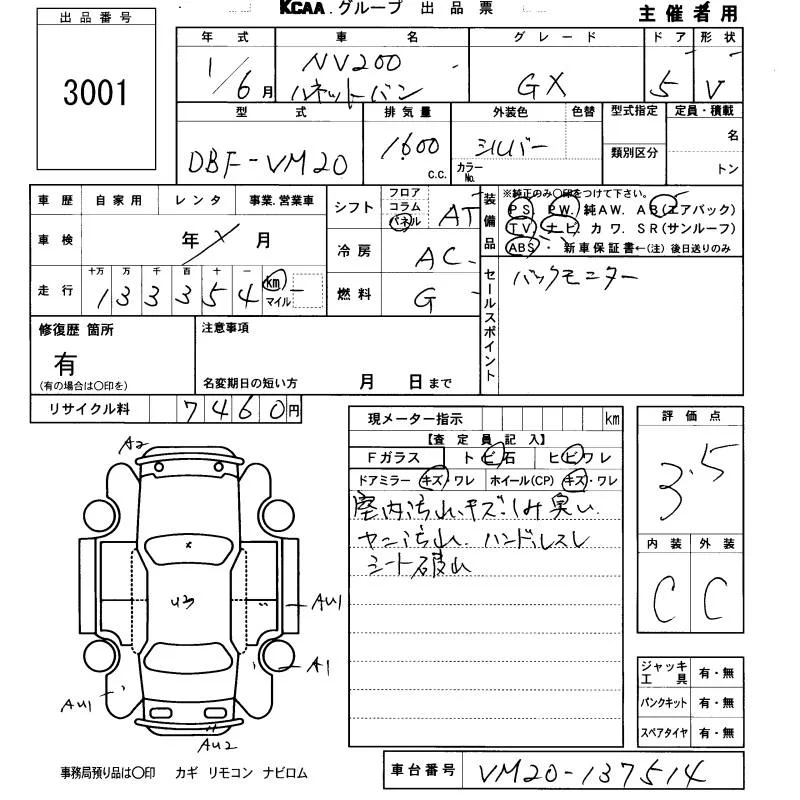 KCAA グループ 出品票
主催者用
出品番号
3001
年式 車名 グレード ドア 形状
1/6月 NV200 バネットバン GX 5 V
型式 排気量 外装色 色替 型式指定 定員・積載
DBF-VM20 1600 c.c. シルバー カラーNo. 類別区分 名 トン
車歴 自家用 レンタ 事業.営業車
車検 年 月
走行 十万 万 千 百 十 一
133354 km マイル
シフト フロア コラム パネル AT
冷房 AC
燃料 G
装備品 ※純正のみ○印をつけて下さい。
PS PW. 純AW. AB(エアバック)
TV ナビ カワ. SR(サンルーフ)
ABS 新車保証書←(注) 後日送りのみ
セールスポイント
バックモニター
修復歴 箇所
有
(有の場合は○印を)
注意事項
名変期日の短い方 月 日まで
リサイクル料 7460円
現メーター指示 km
【査定員記入】
Fガラス トビ石 ヒビワレ
ドアミラー キズ・ワレ ホイール(CP) キズ・ワレ
室内汚れ.キズ.シミ臭い.
ヤニ汚れ. ハンドルスレ
シート破れ
評価点
3.5
内装 外装
C C
A2
U3
AU1
A1
AU1
AU2
ジャッキ工具 有・無
パンクキット 有・無
スペアタイヤ 有・無
事務局預り品は○印 カギ リモコン ナビロム
車台番号 VM20-137514